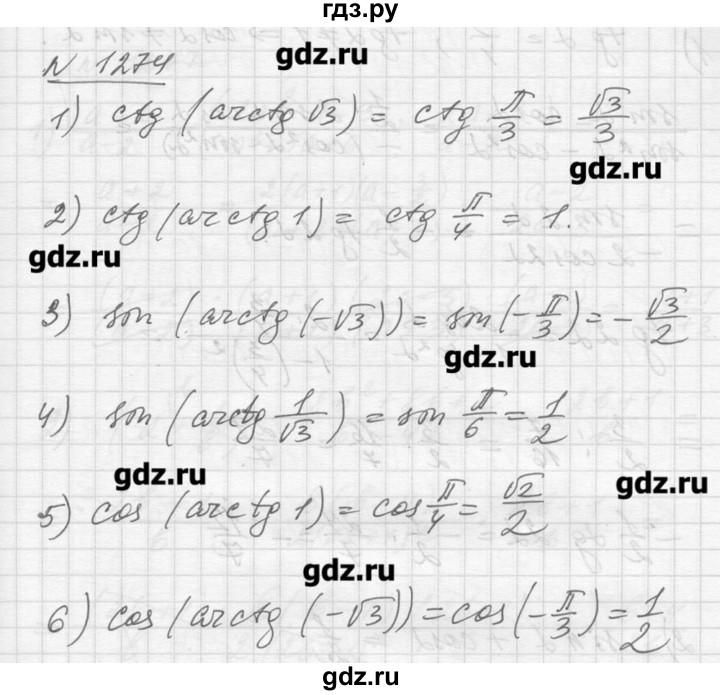 гдз.ру
N 1274
gdz.ru
1) ctg (arctg √3) = ctg π/3 = √3/3
gdz.ru
2) ctg (arctg 1) = ctg π/4 = 1.
gdz.ru
3) sin (arctg (-√3)) = sin (-π/3) = -√3/2
gdz.ru
4) sin (arctg 1/√3) = sin π/6 = 1/2
gdz.ru
gdz.ru
5) cos (arctg 1) = cos π/4 = √2/2
gdz.ru
6) cos (arctg (-√3)) = cos (-π/3) = 1/2
gdz.ru